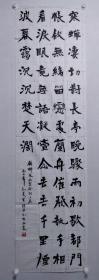 寒蟬淒切對長亭晚驟雨初歇都門
帳飲無緒留戀處蘭舟催發執手相
看淚眼竟無語凝噎念去去千里煙
波暮靄沉沉楚天闊